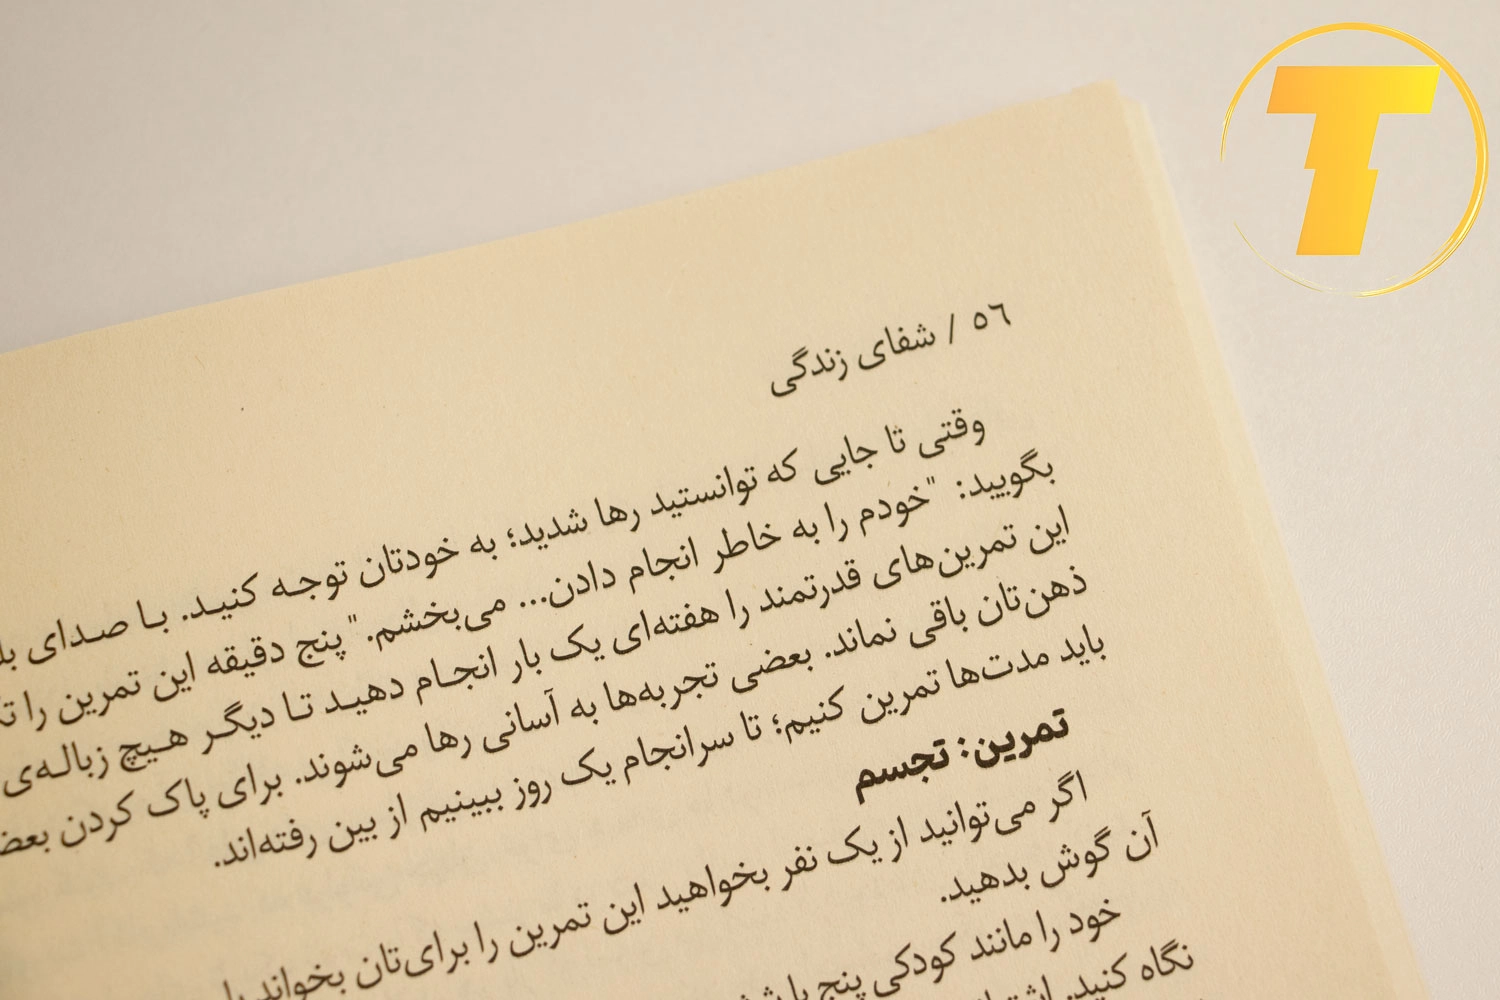 T
٥٦ / شفای زندگی
وقتی تا جایی که توانستید رها شدید؛ به خودتان توجـه کنیـد. بـا صـدای
بگویید: "خودم را به خاطر انجام دادن... می‌بخشم." پنج دقیقه این تمرین را
این تمرین‌های قدرتمند را هفته‌ای یک بار انجـام دهیـد تـا دیگـر هـیچ زبالـه‌ی
ذهن‌تان باقی نماند. بعضی تجربه‌ها به آسانی رها می‌شوند. برای پاک کردن
باید مدت‌ها تمرین کنیم؛ تا سرانجام یک روز ببینیم از بین رفته‌اند.
تمرین: تجسم
اگر می‌توانید از یک نفر بخواهید این تمرین را برای‌تان بخواند
آن گوش بدهید.
خود را مانند کودکی پنج یا
نگاه کنید.